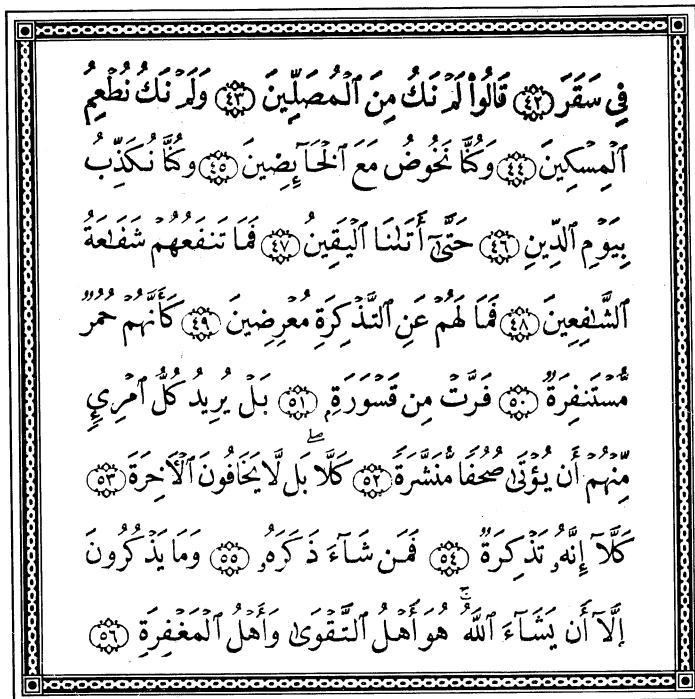 فِي سَقَرَ ﴿٤٢﴾ قَالُوا۟ لَمْ نَكُ مِنَ ٱلْمُصَلِّينَ ﴿٤٣﴾ وَلَمْ نَكُ نُطْعِمُ
ٱلْمِسْكِينَ ﴿٤٤﴾ وَكُنَّا نَخُوضُ مَعَ ٱلْخَآئِضِينَ ﴿٤٥﴾ وَكُنَّا نُكَذِّبُ
بِيَوْمِ ٱلدِّينِ ﴿٤٦﴾ حَتَّىٰٓ أَتَىٰنَا ٱلْيَقِينُ ﴿٤٧﴾ فَمَا تَنفَعُهُمْ شَفَٰعَةُ
ٱلشَّٰفِعِينَ ﴿٤٨﴾ فَمَا لَهُمْ عَنِ ٱلتَّذْكِرَةِ مُعْرِضِينَ ﴿٤٩﴾ كَأَنَّهُمْ حُمُرٌ
مُّسْتَنفِرَةٌ ﴿٥٠﴾ فَرَّتْ مِن قَسْوَرَةٍۭ ﴿٥١﴾ بَلْ يُرِيدُ كُلُّ ٱمْرِئٍ
مِّنْهُمْ أَن يُؤْتَىٰ صُحُفًا مُّنَشَّرَةً ﴿٥٢﴾ كَلَّا ۖ بَل لَّا يَخَافُونَ ٱلْءَاخِرَةَ ﴿٥٣﴾
كَلَّآ إِنَّهُۥ تَذْكِرَةٌ ﴿٥٤﴾ فَمَن شَآءَ ذَكَرَهُۥ ﴿٥٥﴾ وَمَا يَذْكُرُونَ
إِلَّآ أَن يَشَآءَ ٱللَّهُ ۚ هُوَ أَهْلُ ٱلتَّقْوَىٰ وَأَهْلُ ٱلْمَغْفِرَةِ ﴿٥٦﴾